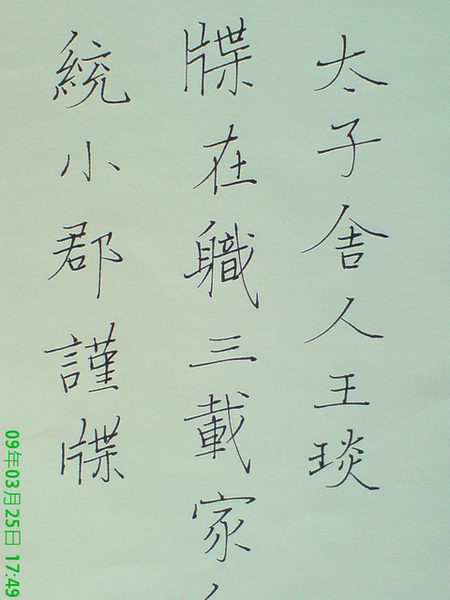 太子舍人王琰
牒在職三載家
統小郡謹牒
09年03月25日 17:49